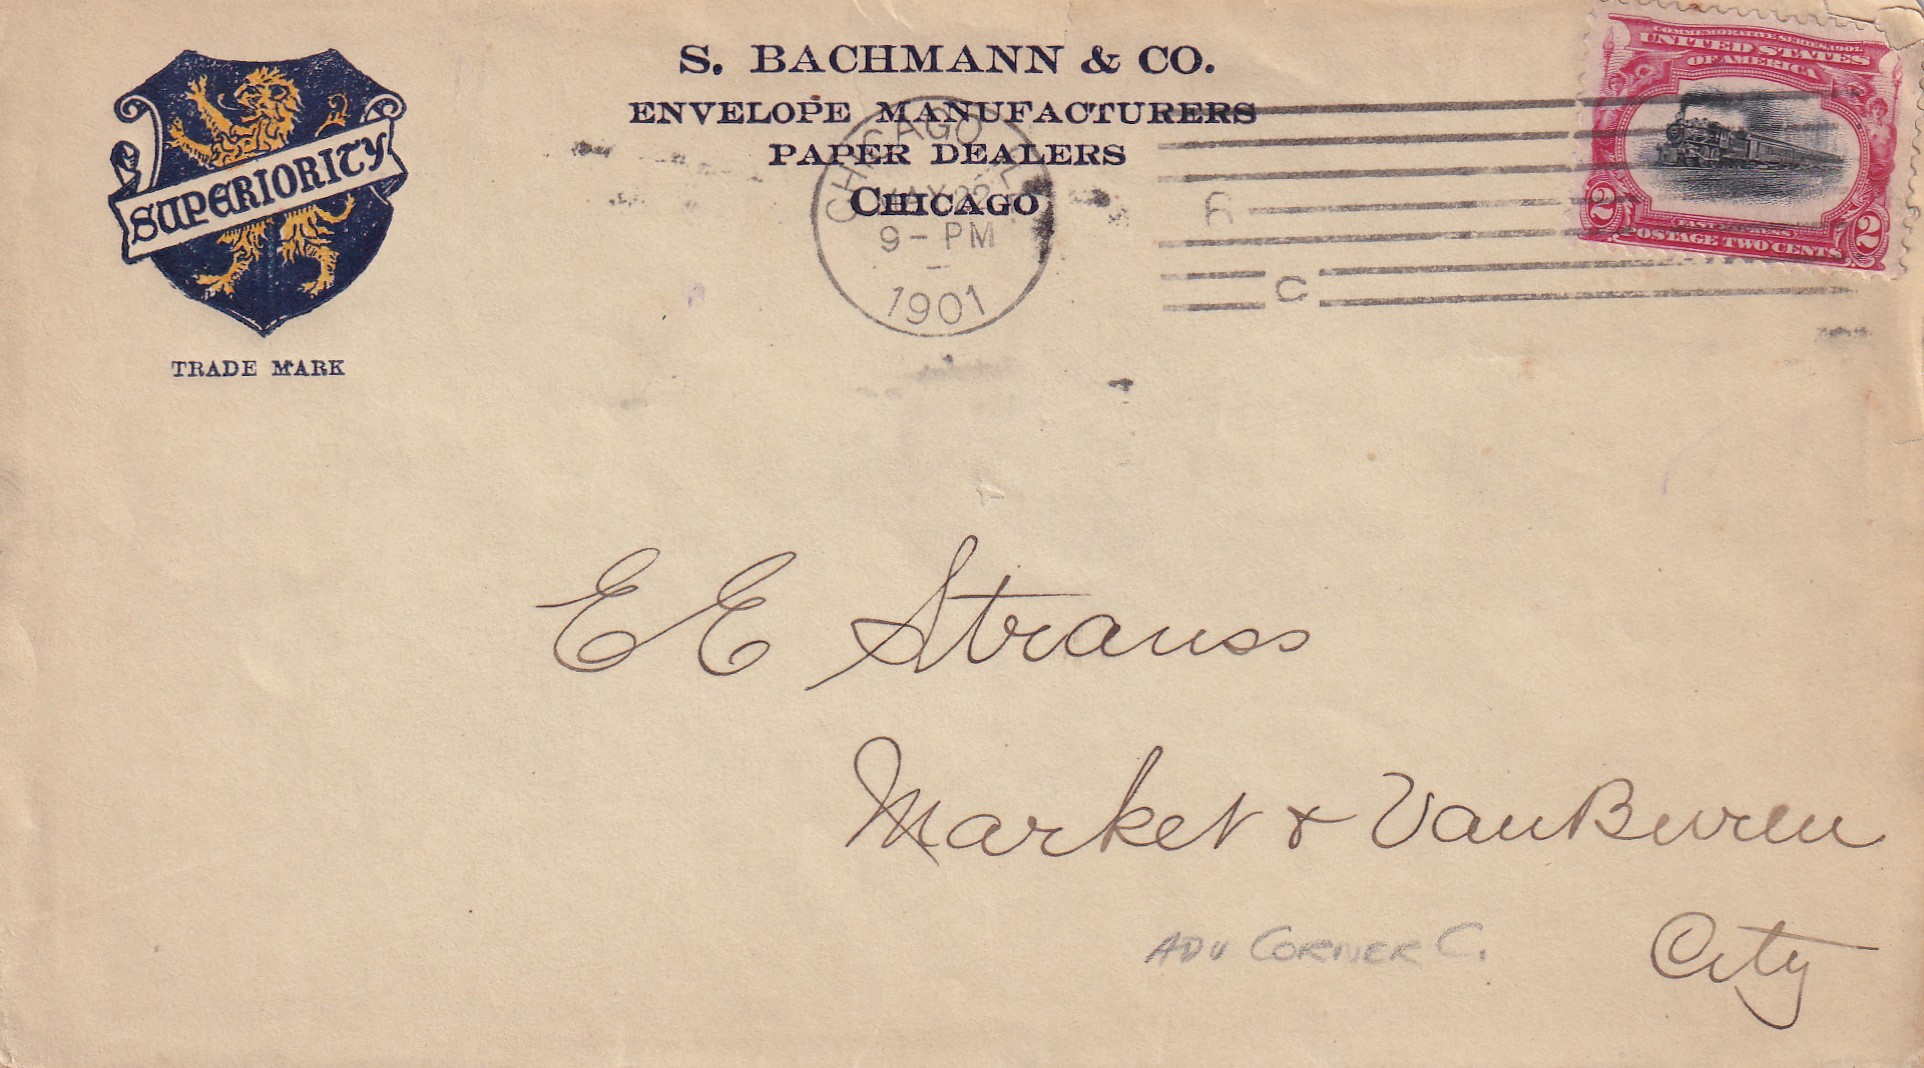 S. BACHMANN & CO.
ENVELOPE MANUFACTURERS
PAPER DEALERS
CHICAGO
SUPERIORITY
TRADE MARK
CHICAGO, ILL.
MAY 22
9 - PM
1901
C
COMMEMORATIVE SERIES, 1901
UNITED STATES
OF AMERICA
FAST EXPRESS
POSTAGE TWO CENTS
2 2
E E Strauss
Market & Van Buren
City
ADV CORNER C.